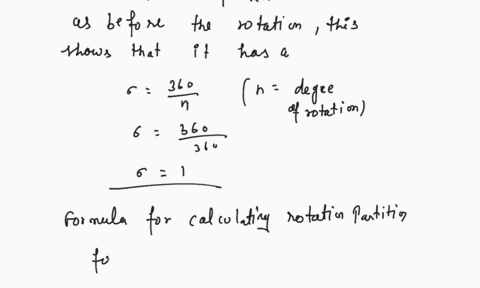 as before the rotation, this
shows that it has a
σ = 360/n (n = degee of rotation)
σ = 360/360
σ = 1
Formula for calculating rotation Partition
fo